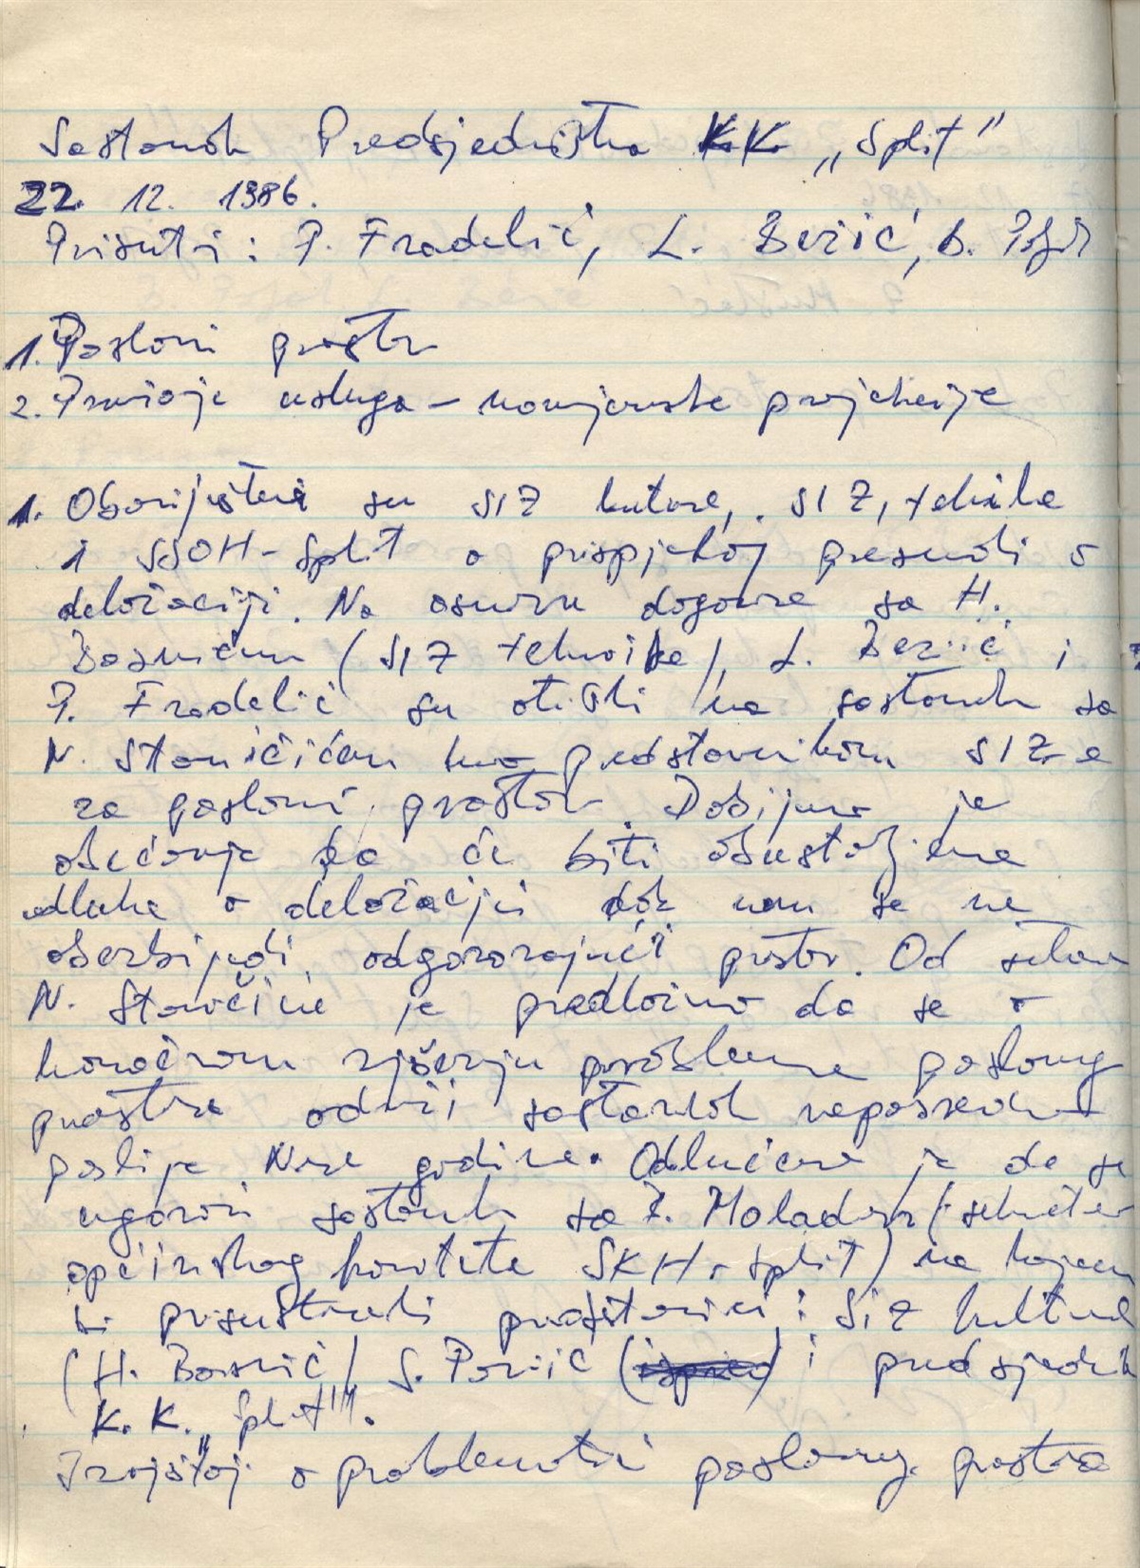 Sastanak Predsjedništva K.K. „Split”
22. 12. 1986.
Prisutni: P. Fradelić, L. Bezić, B.
1. Poslovni prostor
2. usluga – namjenske projekcije
1. Obavijšteni su SIZ kulture, SIZ, tehnike
i SSOH-Split o prispjeloj presudi o
deložaciji. Na osnovu dogovora sa H.
(SIZ tehnike), L. Bezić i
P. Fradelić su otišli na sastanak sa
N. Staničićem kao predstavnikom SIZ-a
za poslovni prostor. Dobijeno je
obećanje da će biti obustavljena
odluka o deložaciji dok nam se ne
obezbijedi odgovarajući prostor. Od strane
N. je predloženo da se o
konačnom rješenju problema poslovnog
prostora održi sastanak neposredno
poslije Nove godine. Odlučeno je da se
ugovori sastanak sa Ž. (sekretar
općinskog komiteta SKH, Split) na kojem
bi prisustvovali predstavnici: SIZ kulture
(H. / S. ( ) i predsjednik
K.K. „Split”.
Izvještaj o problematici poslovnog prostora